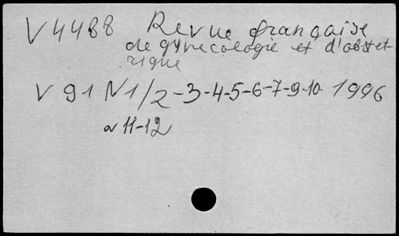 V 4488 Revue française
de gynecologie et d'obstet
rique
V 91 N 1/2-3-4-5-6-7-9-10 1996
N 11-12